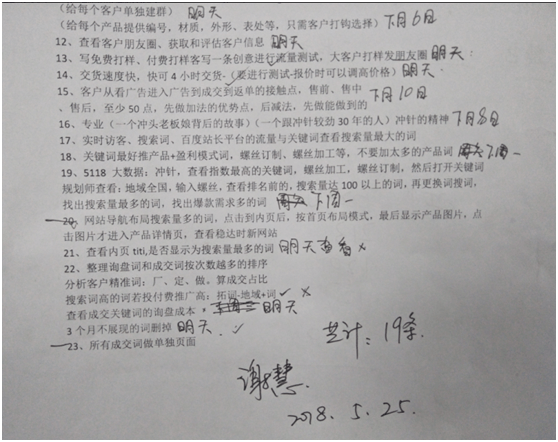 (给每个客户单独建群) 明天
(给每个产品提供编号,材质,外形、表处等,只需客户打钩选择) 下月6日
12、查看客户朋友圈、获取和评估客户信息 明天
13、写免费打样、付费打样客写一条创意进行流量测试,大客户打样发朋友圈 明天
14、交货速度快,快可4小时交货-(要进行测试-报价时可以调高价格) 明天、
15、客户从看广告进入广告到成交到返单的接触点,售前、售中
、售后,至少50点,先做加法的优势点,后减法,先做能做到的 下月10日
16、专业(一个冲头老板娘背后的故事)(一个跟冲针较劲30年的人)冲针的精神 下月8日
17、实时访客、搜索词、百度站长平台的流量与关键词查看搜索量最大的词
18、关键词最好推产品+盈利模式词,螺丝订制、螺丝加工等,不要加太多的产品词 下周一
19、5118 大数据:冲针,查看指数最高的关键词,螺丝加工,螺丝订制,然后打开关键词
规划师查看:地域全国,输入螺丝,查看排名前的,搜索量达100以上的词,再更换词搜词,
找出搜索量最多的词,找出爆款需求多的词 下周一
20、网站导航布局搜索量多的词,点击到内页后,按首页布局模式,最后显示产品图片,点
击图片才进入产品详情页,查看稳达时新网站
21、查看内页 titi,是否显示为搜索量最多的词 明天查看 ×
22、整理询盘词和成交词按次数越多的排序
分析客户精准词:厂、定、做。算成交占比
搜索词高的词若投付费推广高:拓词-地域+词 ✓ ×
查看成交关键词的询盘成本。 明天
3个月不展现的词删掉 明天. ✓
23、所有成交词做单独页面
共计:19条.
谢慧.
2018.5.25.